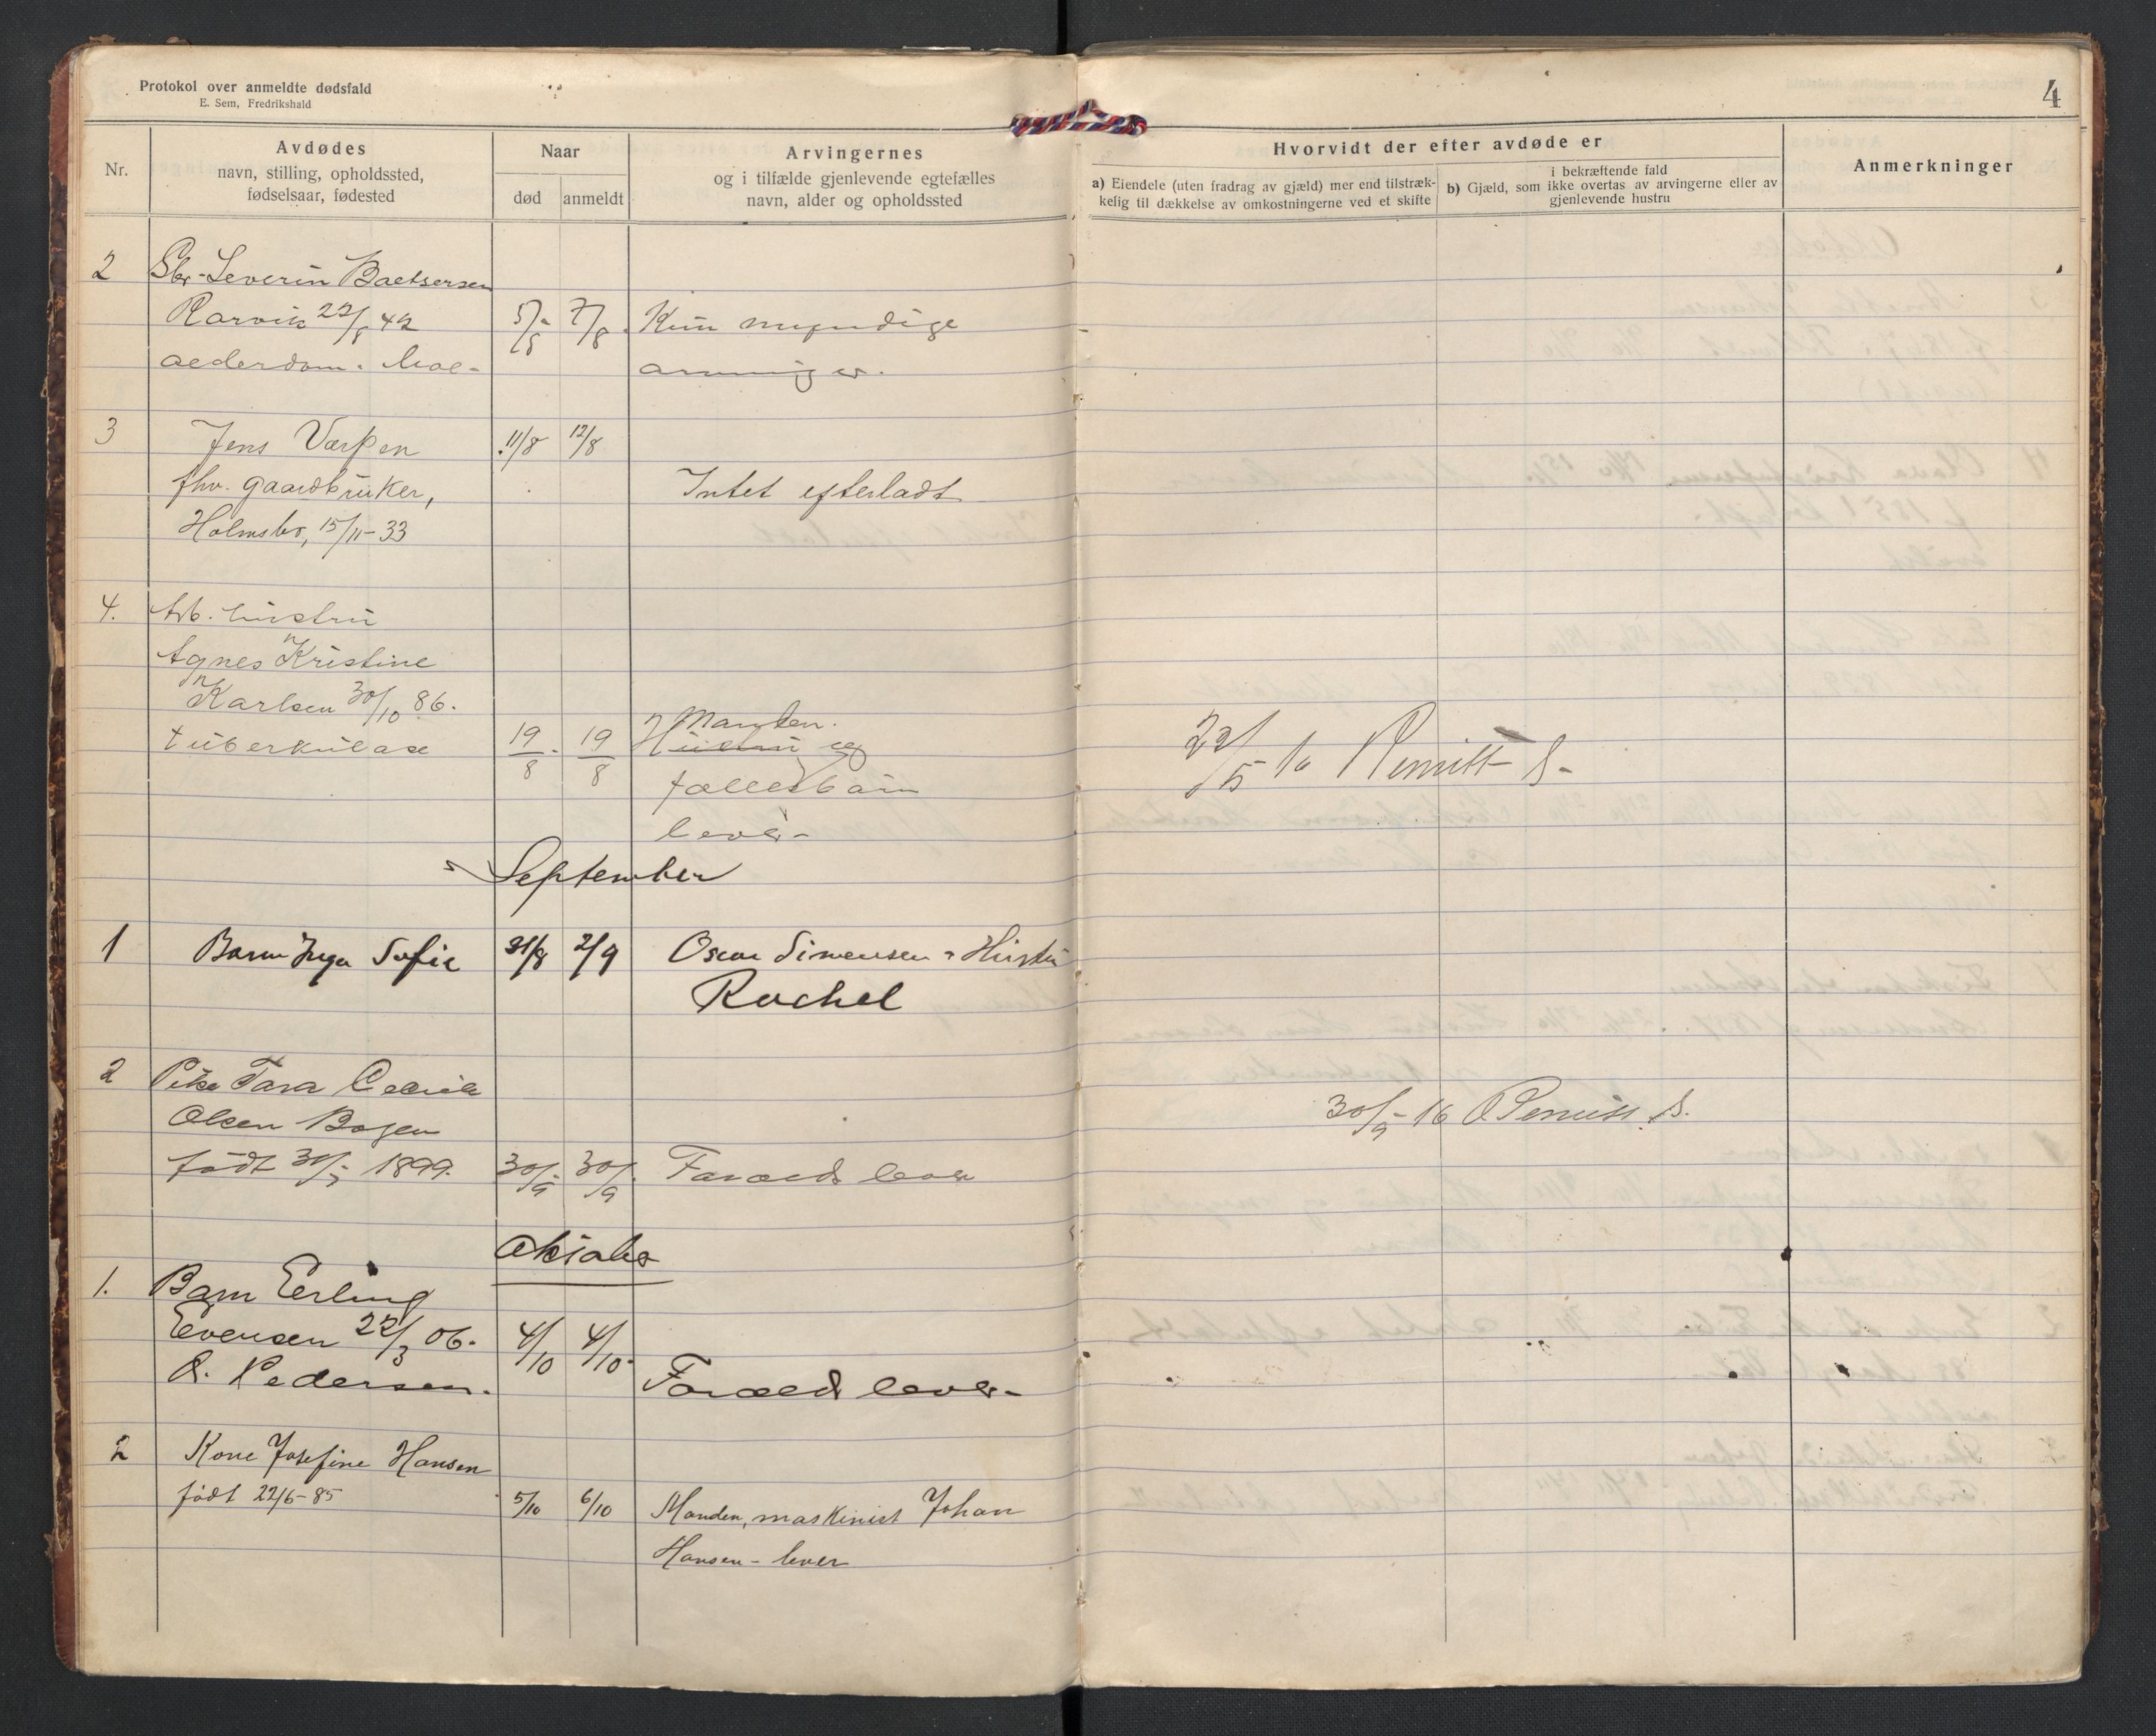 Protokol over anmeldte dødsfald
E. Sem, Fredrikshald
4
Nr.
Avdødes
navn, stilling, opholdssted,
fødselsaar, fødested
Naar
død
anmeldt
Arvingernes
og i tilfælde gjenlevende egtefælles
navn, alder og opholdssted
Hvorvidt der efter avdøde er
a) Eiendele (uten fradrag av gjæld) mer end tilstræk-
kelig til dækkelse av omkostningerne ved et skifte
i bekræftende fald
b) Gjæld, som ikke overtas av arvingerne eller av
gjenlevende hustru
Anmerkninger
2 Severin
Rørvik 22/8 42 5/8 7/8 Kun myndige
alderdom. arvinger.
3 Jens Verpen 11/8 12/8
fhv. gaardbruker, Intet efterladt
Holmsbo, 15/11-33
4. Arb. hustru
Agnes Kristine
Karlsen 30/10 86.
tuberkulose 19/8 19/8 Manden
Hustru og
fællesbarn
lever-
22/5 16 Remitt S-
September
1 Barn Inga Sofie 31/8 2/9 Oscar Simensen Hustru
Rachel
2 Pike
Olsen Bogen
født 1899. 30/9 30/9 Foræld lever
30/9-16 Remitt S.
Oktober
1. Barn Erling
Evensen 22/3 06. 4/10 4/10
Pedersen. Foræld lever-
2 Kone Josefine Hansen
født 22/6-85 5/10 6/10 Manden, maskinist Johan
Hansen - lever